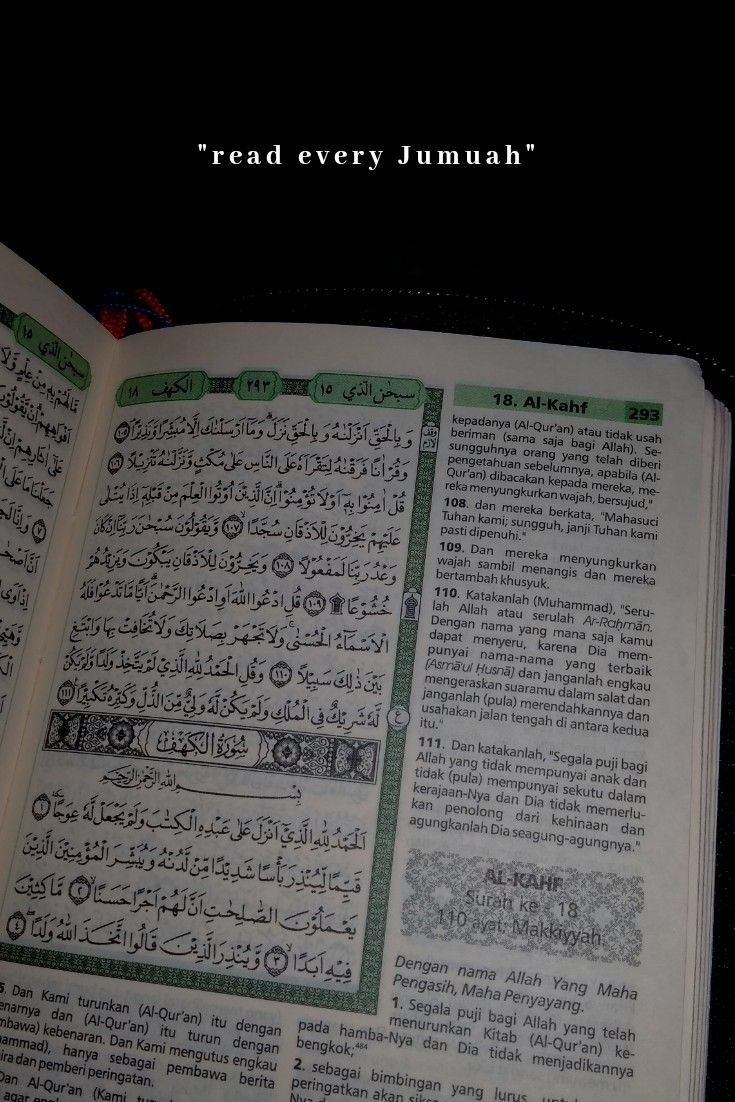 "read every Jumuah"
سبحن الذي ١٥
٢٩٣
الكهف ١٨
وَبِالْحَقِّ اَنْزَلْنٰهُ وَبِالْحَقِّ نَزَلَۗ وَمَآ اَرْسَلْنٰكَ اِلَّا مُبَشِّرًا وَّنَذِيْرًاۘ ١٠٥
وَقُرْاٰنًا فَرَقْنٰهُ لِتَقْرَاَهٗ عَلَى النَّاسِ عَلٰى مُكْثٍ وَّنَزَّلْنٰهُ تَنْزِيْلًا ١٠٦
قُلْ اٰمِنُوْا بِهٖٓ اَوْ لَا تُؤْمِنُوْاۗ اِنَّ الَّذِيْنَ اُوْتُوا الْعِلْمَ مِنْ قَبْلِهٖٓ اِذَا يُتْلٰى
عَلَيْهِمْ يَخِرُّوْنَ لِلْاَذْقَانِ سُجَّدًا ١٠٧ وَّيَقُوْلُوْنَ سُبْحٰنَ رَبِّنَآ اِنْ كَانَ
وَعْدُ رَبِّنَا لَمَفْعُوْلًا ١٠٨ وَيَخِرُّوْنَ لِلْاَذْقَانِ يَبْكُوْنَ وَيَزِيْدُهُمْ
خُشُوْعًا ۩ ١٠٩ قُلِ ادْعُوا اللّٰهَ اَوِ ادْعُوا الرَّحْمٰنَۗ اَيًّا مَّا تَدْعُوْا فَلَهُ
الْاَسْمَاۤءُ الْحُسْنٰىۚ وَلَا تَجْهَرْ بِصَلَاتِكَ وَلَا تُخَافِتْ بِهَا وَابْتَغِ
بَيْنَ ذٰلِكَ سَبِيْلًا ١١٠ وَقُلِ الْحَمْدُ لِلّٰهِ الَّذِيْ لَمْ يَتَّخِذْ وَلَدًا وَّلَمْ يَكُنْ
لَّهٗ شَرِيْكٌ فِى الْمُلْكِ وَلَمْ يَكُنْ لَّهٗ وَلِيٌّ مِّنَ الذُّلِّ وَكَبِّرْهُ تَكْبِيْرًا ١١١
سُوْرَةُ الْكَهْفِ
بِسْمِ اللّٰهِ الرَّحْمٰنِ الرَّحِيْمِ
اَلْحَمْدُ لِلّٰهِ الَّذِيْٓ اَنْزَلَ عَلٰى عَبْدِهِ الْكِتٰبَ وَلَمْ يَجْعَلْ لَّهٗ عِوَجًاۜ ١
قَيِّمًا لِّيُنْذِرَ بَأْسًا شَدِيْدًا مِّنْ لَّدُنْهُ وَيُبَشِّرَ الْمُؤْمِنِيْنَ الَّذِيْنَ
يَعْمَلُوْنَ الصّٰلِحٰتِ اَنَّ لَهُمْ اَجْرًا حَسَنًاۙ ٢ مَّاكِثِيْنَ
فِيْهِ اَبَدًاۙ ٣ وَّيُنْذِرَ الَّذِيْنَ قَالُوا اتَّخَذَ اللّٰهُ وَلَدًا ٤
18. Al-Kahf
293
kepadanya (Al-Qur'an) atau tidak usah
beriman (sama saja bagi Allah). Se-
sungguhnya orang yang telah diberi
pengetahuan sebelumnya, apabila (Al-
Qur'an) dibacakan kepada mereka, me-
reka menyungkurkan wajah, bersujud."
108. dan mereka berkata, "Mahasuci
Tuhan kami; sungguh, janji Tuhan kami
pasti dipenuhi."
109. Dan mereka menyungkurkan
wajah sambil menangis dan mereka
bertambah khusyuk.
110. Katakanlah (Muhammad), "Seru-
lah Allah atau serulah Ar-Raḥmān.
Dengan nama yang mana saja kamu
dapat menyeru, karena Dia mem-
punyai nama-nama yang terbaik
(Asmā'ul Ḥusnā) dan janganlah engkau
mengeraskan suaramu dalam salat dan
janganlah (pula) merendahkannya dan
usahakan jalan tengah di antara kedua
itu."
111. Dan katakanlah, "Segala puji bagi
Allah yang tidak mempunyai anak dan
tidak (pula) mempunyai sekutu dalam
kerajaan-Nya dan Dia tidak memerlu-
kan penolong dari kehinaan dan
agungkanlah Dia seagung-agungnya."
AL-KAHF
Surah ke - 18
110 ayat. Makkiyyah.
Dengan nama Allah Yang Maha
Pengasih, Maha Penyayang.
1. Segala puji bagi Allah yang telah
menurunkan Kitab (Al-Qur'an) ke-
pada hamba-Nya dan Dia tidak menjadikannya
bengkok;⁴⁸⁴
2. sebagai bimbingan yang lurus, untuk
peringatkan akan
5. Dan Kami turunkan (Al-Qur'an) itu dengan
enarnya dan (Al-Qur'an) itu turun dengan
mbawa) kebenaran. Dan Kami mengutus engkau
ammad), hanya sebagai pembawa berita
ira dan pemberi peringatan.
Dan Al-Qur'an (Kami